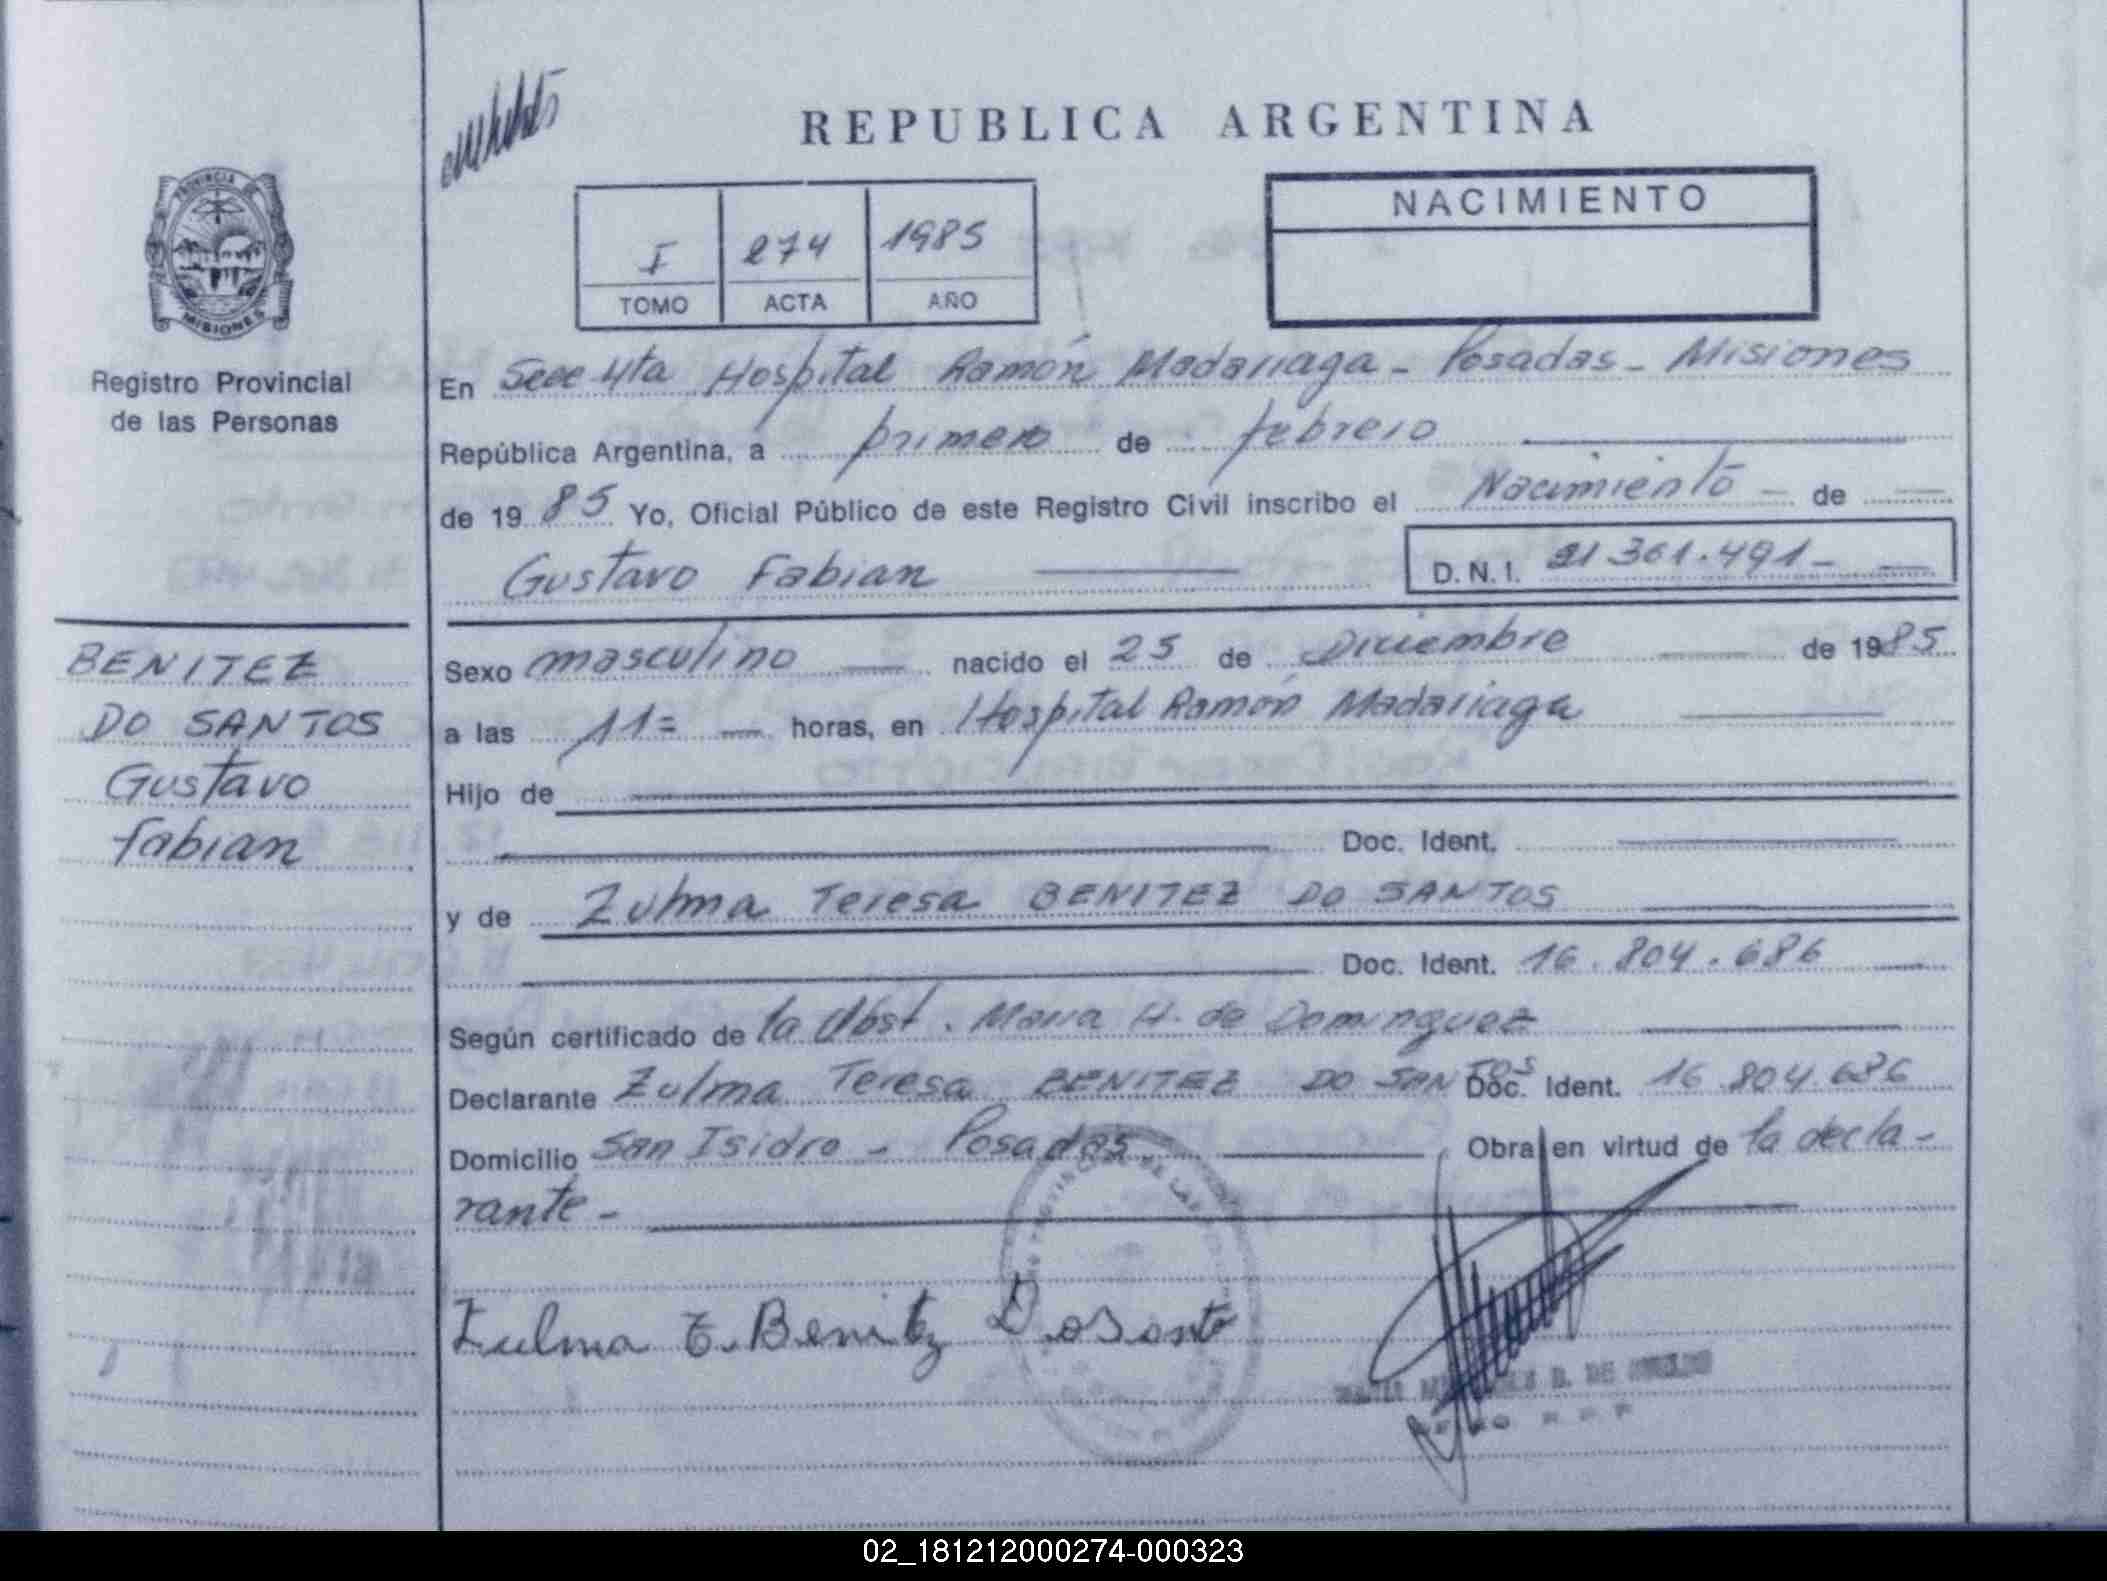 REPUBLICA ARGENTINA
PROVINCIA DE
MISIONES
Registro Provincial
de las Personas
I 274 1985
TOMO ACTA AÑO
NACIMIENTO
En Secc 4ta Hospital Ramón Madariaga - Posadas - Misiones
República Argentina, a primero de febrero
de 1985 Yo, Oficial Público de este Registro Civil inscribo el Nacimiento - de
Gustavo Fabian D.N.I. 31 361.491-
BENITEZ
DO SANTOS
Gustavo
fabian
Sexo masculino nacido el 25 de Diciembre de 1985
a las 11= horas, en Hospital Ramón Madariaga
Hijo de
Doc. Ident.
y de Zulma Teresa BENITEZ DO SANTOS
Doc. Ident. 16.804.686
Según certificado de la Obst. Maria H. de Dominguez
Declarante Zulma Teresa BENITEZ DO SANTOS Doc. Ident. 16.804.686
Domicilio San Isidro - Posadas. Obra en virtud de la decla-
rante -
Zulma T. Benitez Do Santo
02_181212000274-000323